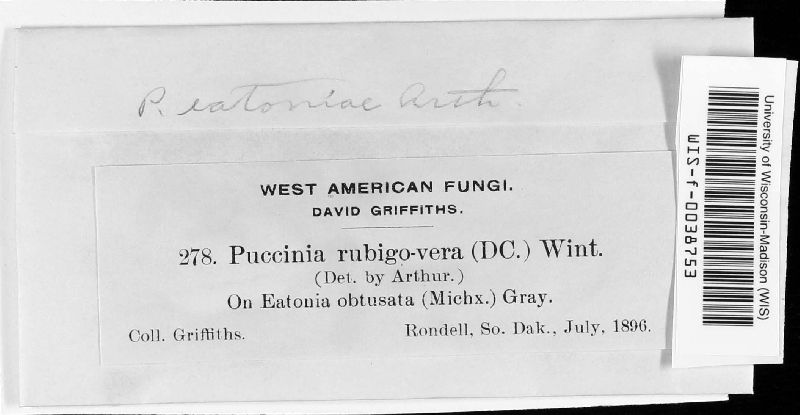 P. eatoniae Arth.
WEST AMERICAN FUNGI.
DAVID GRIFFITHS.
278. Puccinia rubigo-vera (DC.) Wint.
(Det. by Arthur.)
On Eatonia obtusata (Michx.) Gray.
Coll. Griffiths. Rondell, So. Dak., July, 1896.
University of Wisconsin-Madison (WIS)
WIS-f-0038753